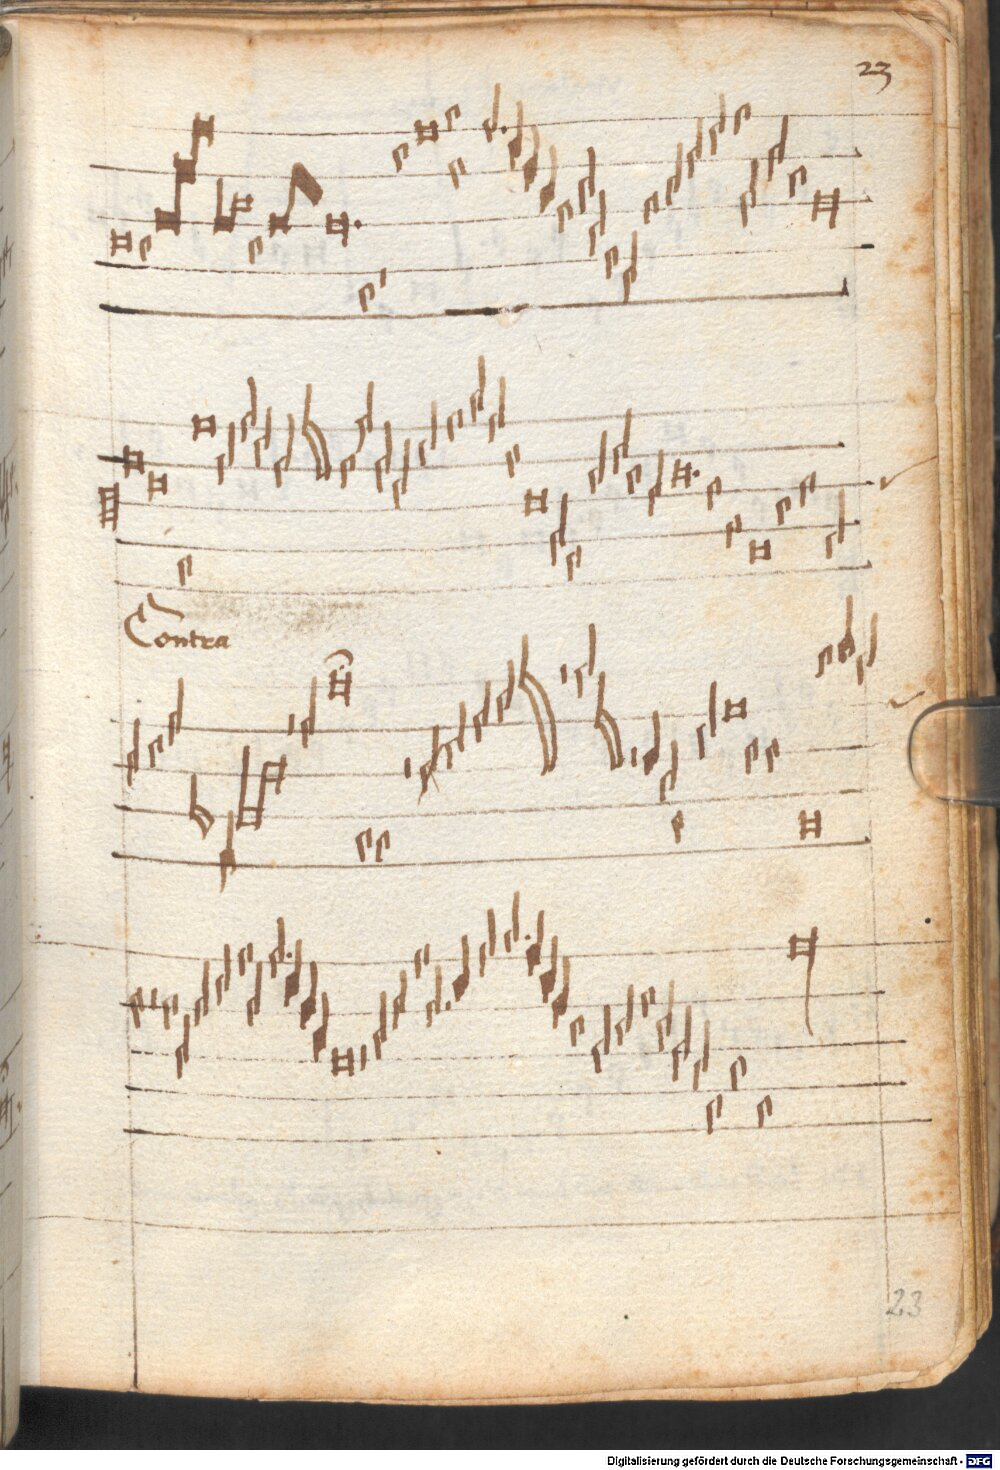 23
Contra
23
Digitalisierung gefördert durch die Deutsche Forschungsgemeinschaft - DFG